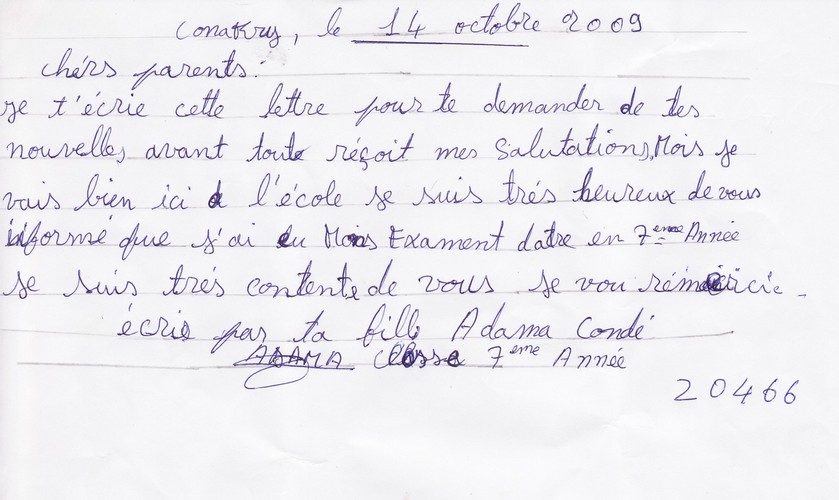 Conakry, le 14 octobre 2009
chérs parents:
je t'écrie cette lettre pour te demander de tes
nouvelles, avant toute réçoit mes Salutations, Mois je
vais bien ici à l'école je suis trés heureux de vous
informé que j'ai eu Mons Exament d'atre en 7eme Année
je suis trés contente de vous je vou rémericie -
écris par ta fille Adama Condé
ADAMA Classe 7eme Année
20466